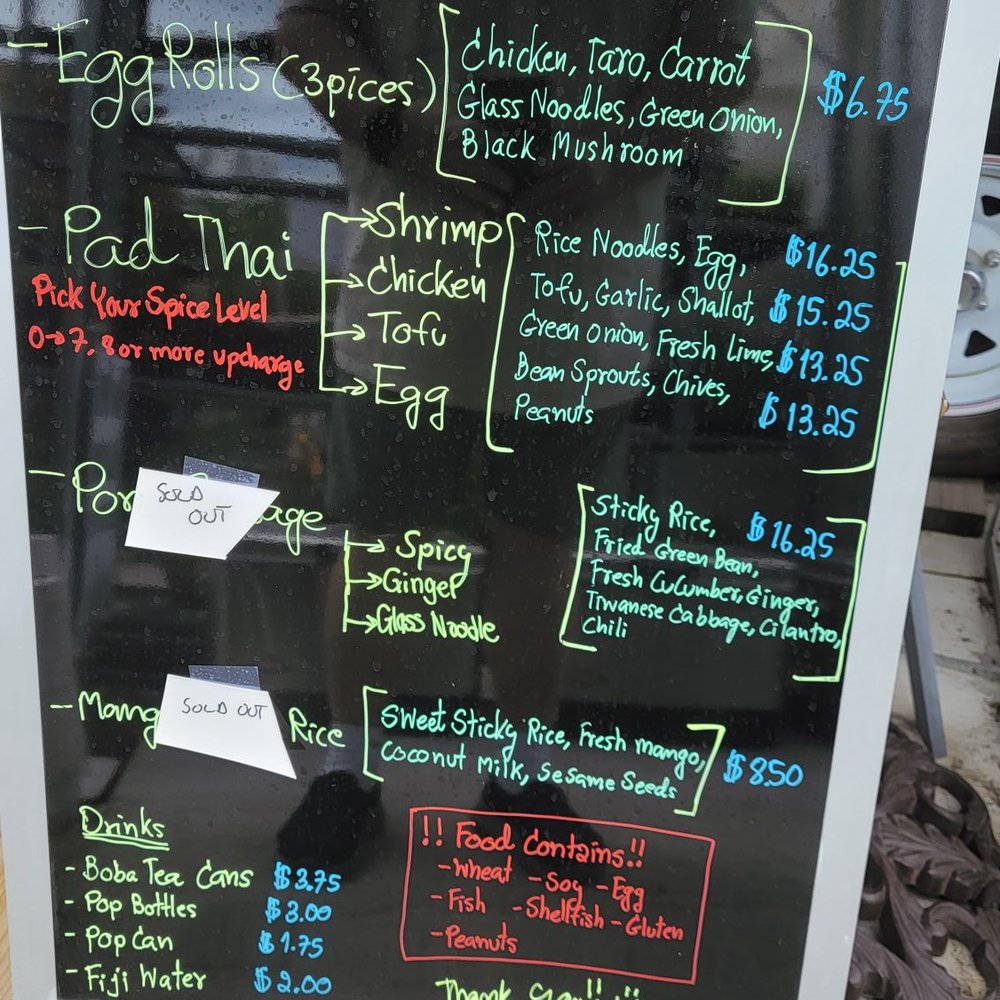 - Egg Rolls (3pices)
Chicken, Taro, Carrot
Glass Noodles, Green Onion,
Black Mushroom
$6.75
- Pad Thai
Pick Your Spice Level
0→7, 8 or more upcharge
→Shrimp
→Chicken
→Tofu
→Egg
Rice Noodles, Egg,
Tofu, Garlic, Shallot,
Green onion, Fresh lime,
Bean Sprouts, Chives,
Peanuts
$16.25
$15.25
$13.25
$13.25
- Por
SOLD
OUT
age
→Spicy
→Ginger
→Glass Noodle
Sticky Rice,
Fried Green Bean,
Fresh Cucumber, Ginger,
Tiwanese Cabbage, Cilantro,
Chili
$16.25
- Mang
SOLD OUT
Rice
Sweet Sticky Rice, Fresh mango,
Coconut Milk, Sesame Seeds
$8.50
Drinks
- Boba Tea Cans $3.75
- Pop Bottles $3.00
- Pop Can $1.75
- Fiji Water $2.00
!! Food Contains!!
- Wheat - Soy - Egg
- Fish - Shellfish - Gluten
- Peanuts
Thank